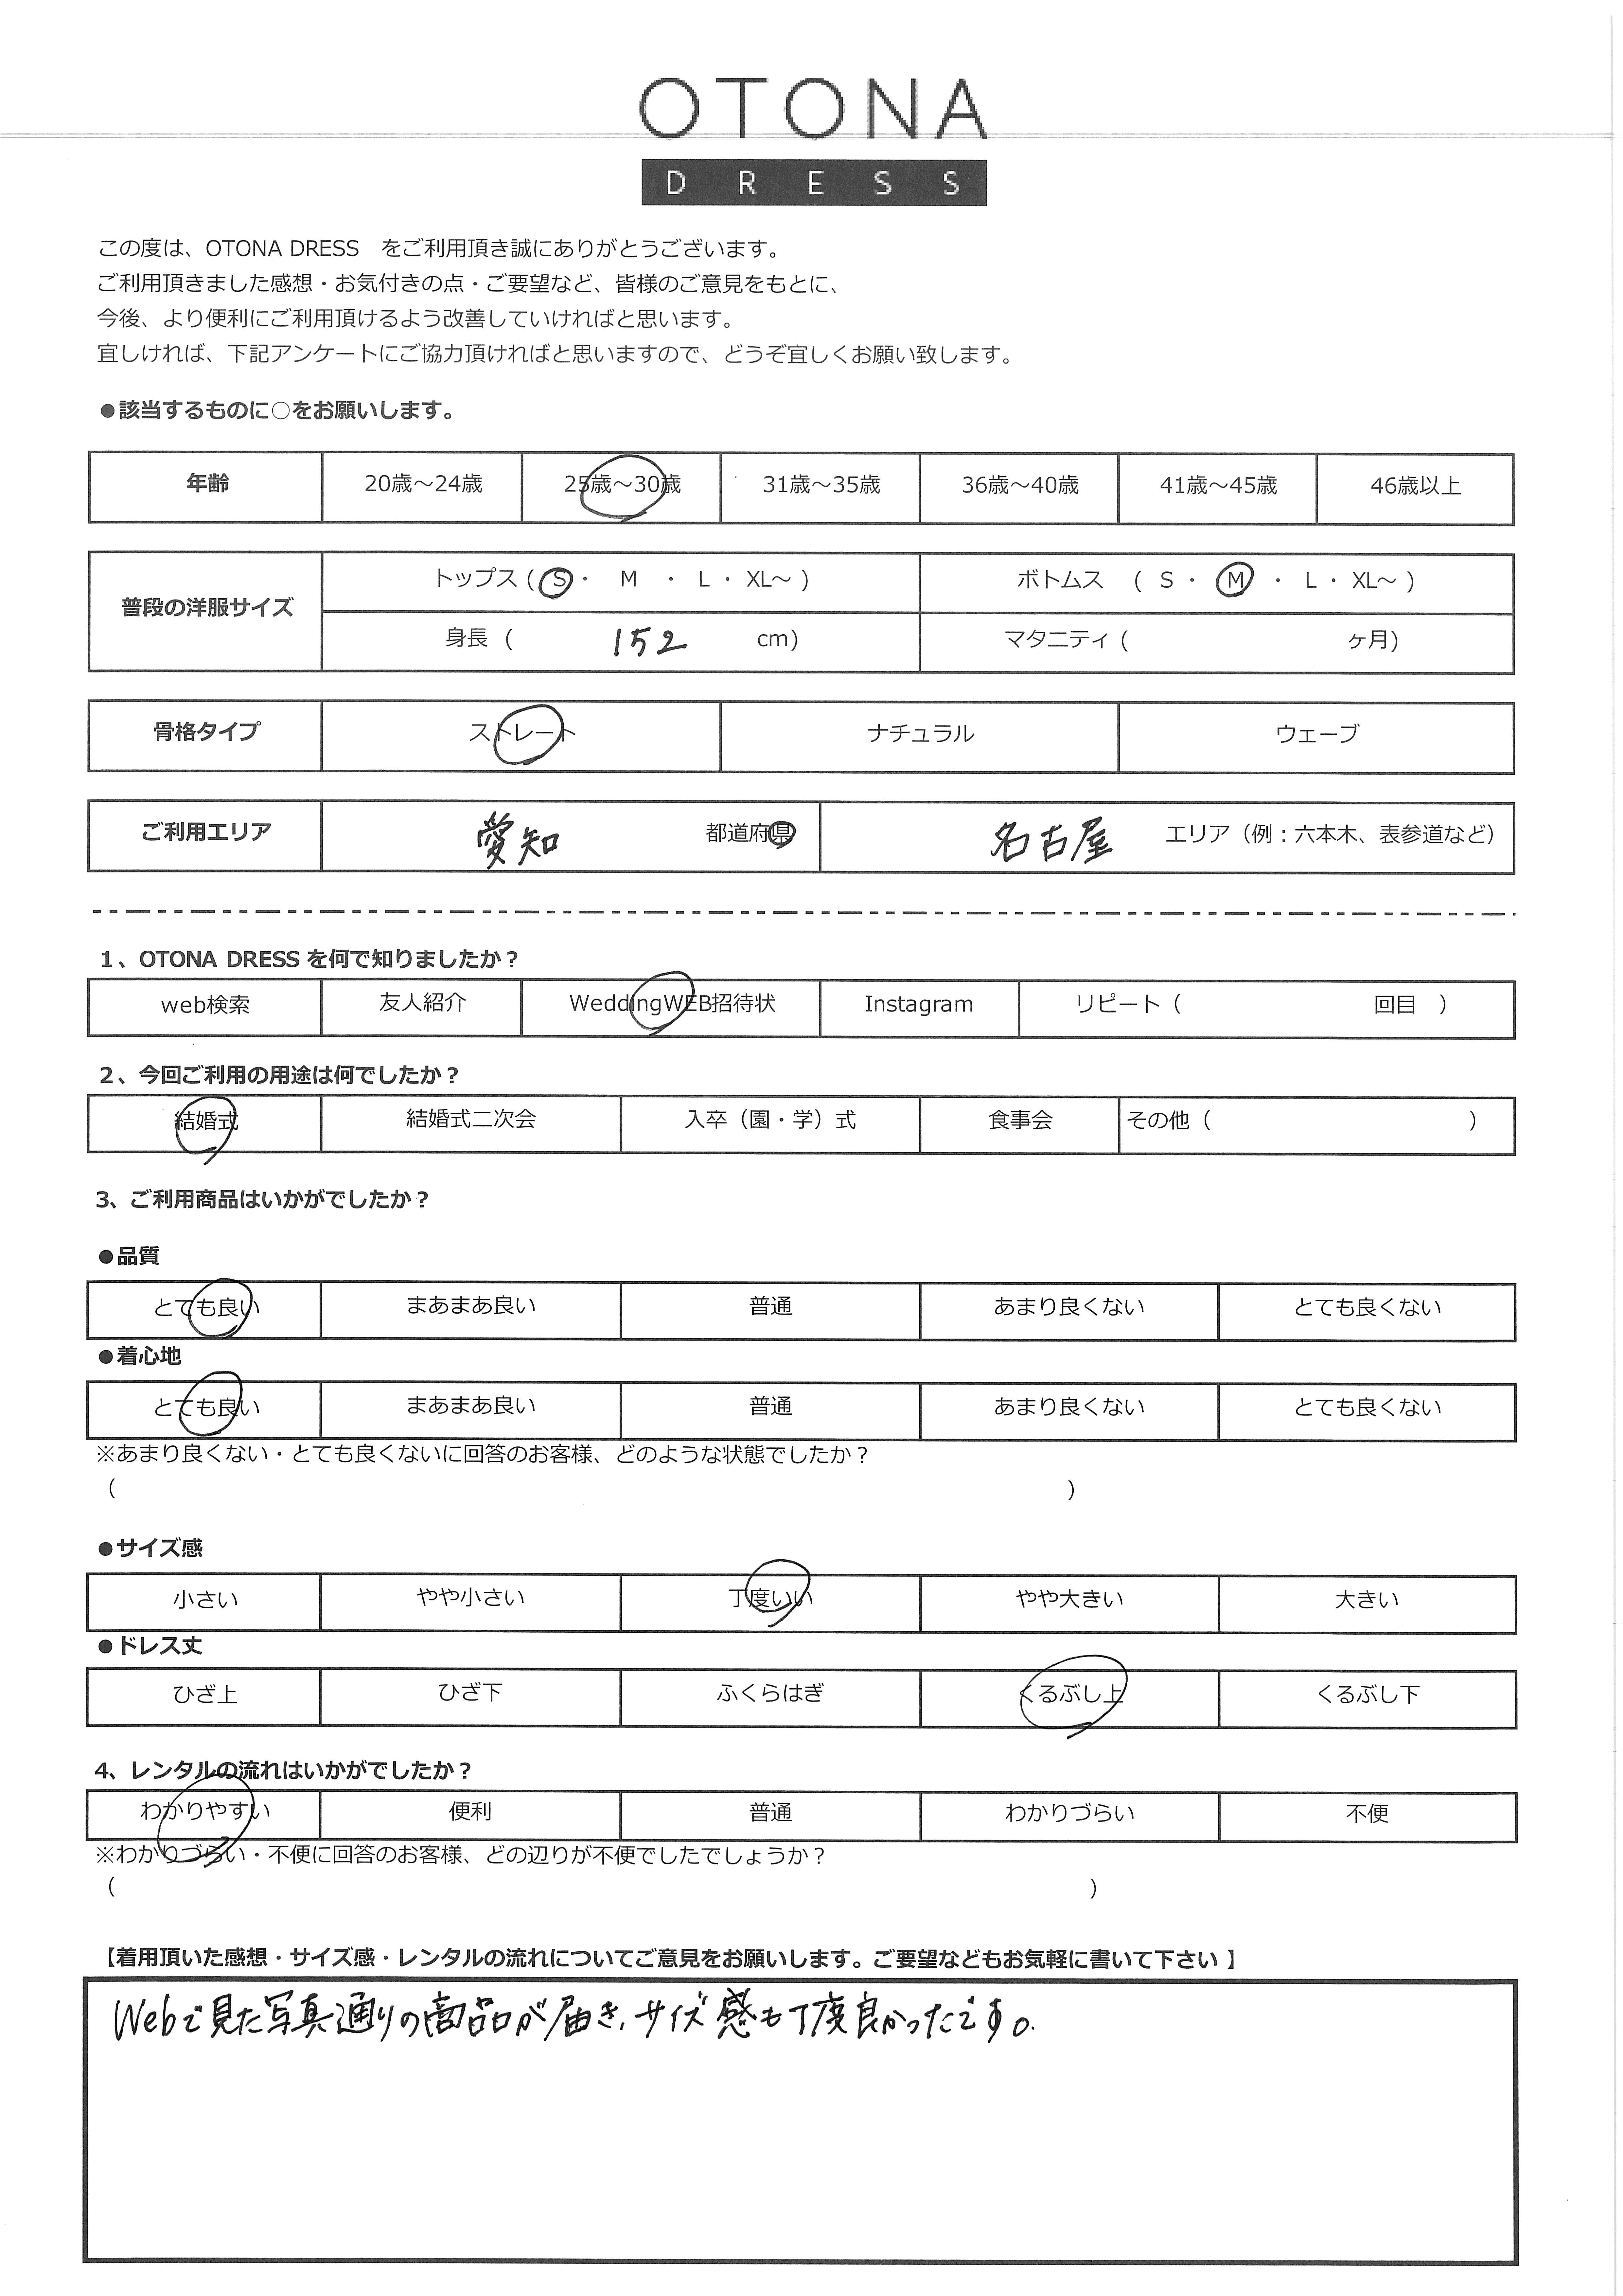 OTONA
DRESS
この度は、OTONA DRESS　をご利用頂き誠にありがとうございます。
ご利用頂きました感想・お気付きの点・ご要望など、皆様のご意見をもとに、
今後、より便利にご利用頂けるよう改善していければと思います。
宜しければ、下記アンケートにご協力頂ければと思いますので、どうぞ宜しくお願い致します。
●該当するものに○をお願いします。
年齢 20歳～24歳 25歳～30歳 31歳～35歳 36歳～40歳 41歳～45歳 46歳以上
普段の洋服サイズ トップス ( S ・ M ・ L ・ XL～ ) ボトムス ( S ・ M ・ L ・ XL～ )
身長 ( 152 cm) マタニティ ( ヶ月)
骨格タイプ ストレート ナチュラル ウェーブ
ご利用エリア 愛知 都道府県 名古屋 エリア（例：六本木、表参道など）
1、OTONA DRESS を何で知りましたか？
web検索 友人紹介 WeddingWEB招待状 Instagram リピート（ 回目 ）
2、今回ご利用の用途は何でしたか？
結婚式 結婚式二次会 入卒（園・学）式 食事会 その他（ ）
3、ご利用商品はいかがでしたか？
●品質
とても良い まあまあ良い 普通 あまり良くない とても良くない
●着心地
とても良い まあまあ良い 普通 あまり良くない とても良くない
※あまり良くない・とても良くないに回答のお客様、どのような状態でしたか？
（ ）
●サイズ感
小さい やや小さい 丁度いい やや大きい 大きい
●ドレス丈
ひざ上 ひざ下 ふくらはぎ くるぶし上 くるぶし下
4、レンタルの流れはいかがでしたか？
わかりやすい 便利 普通 わかりづらい 不便
※わかりづらい・不便に回答のお客様、どの辺りが不便でしたでしょうか？
（ ）
【着用頂いた感想・サイズ感・レンタルの流れについてご意見をお願いします。ご要望などもお気軽に書いて下さい 】
Webで見た写真通りの商品が届き、サイズ感も丁度良かったです。